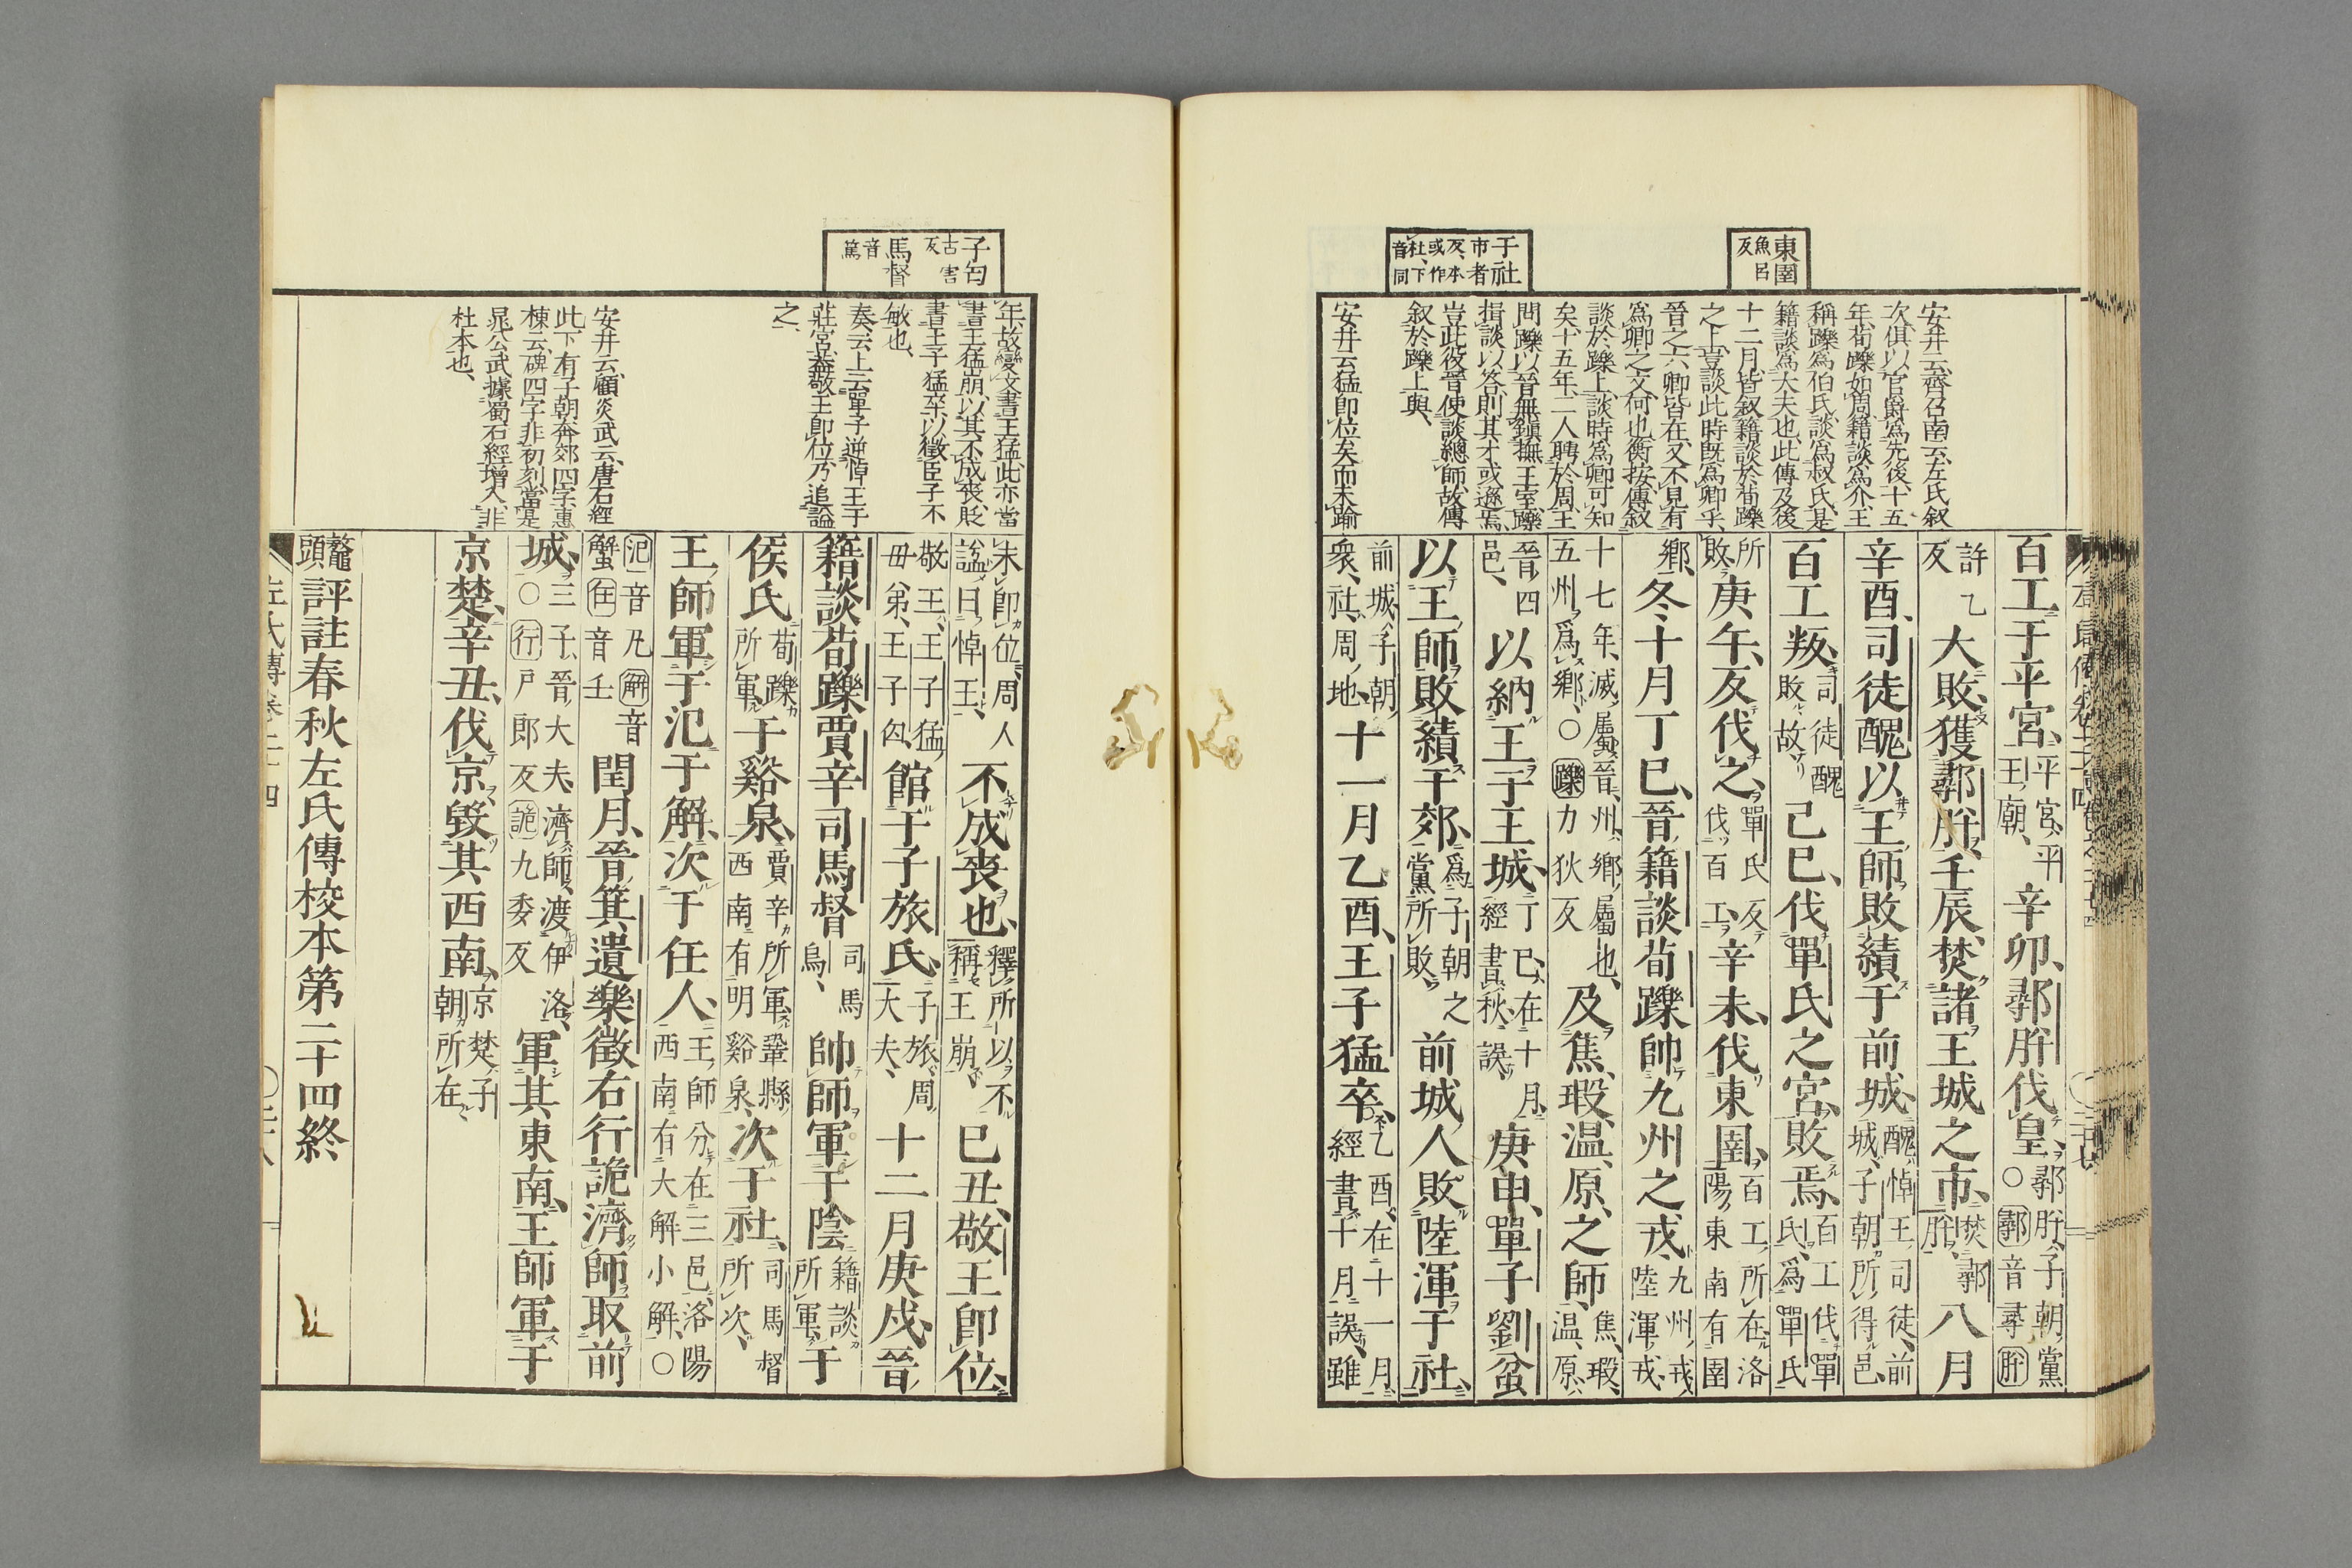 東圉魚呂反
于社市者反本或作杜下音同
安井云齊召南云左氏叙
次俱以官爵爲先後十五
年荀躒如周籍談爲介王
稱躒爲伯氏談爲叔氏是
籍談爲大夫也此傳及後
十二月皆叙籍談於荀躒
之上豈談此時既爲卿乎
晉之六卿皆在又不見有
爲卿之文何也衡按傳叙
談於躒上談時爲卿可知
矣十五年二人聘於周王
問躒以晉無鎮撫王室躒
揖談以答則其才或遜焉
豈此役晉使談總師故傳
叙於躒上與
安井云猛即位矣而未踰
百工于平宮平宮平王廟辛卯鄩肸伐皇○鄩肸子朝黨鄩音尋肸
許乙反大敗獲鄩肸壬辰焚諸王城之市焚鄩肸八月
辛酉司徒醜以王師敗績于前城醜悼王司徒前城子朝所得邑
百工叛司徒醜敗故己巳伐單氏之宮敗焉百工伐單氏爲單氏
所敗庚午反伐之單氏反伐百工辛未伐東圉百工所在洛陽東南有圉
鄉冬十月丁巳晉籍談荀躒帥九州之戎九州戎陸渾戎
十七年滅屬晉州鄉屬也五州爲鄉○躒力狄反及焦瑕温原之師焦瑕温原
晉四邑以納王于王城丁巳在十月經書秋誤庚申單子劉蚠
以王師敗績于郊爲子朝之黨所敗前城人敗陸渾于社
前城子朝衆社周地十一月乙酉王子猛卒乙酉在十一月經書十月誤雖
子匄古害反
馬督音篤
年故變文書王猛此亦當
書王猛崩以其不成喪貶
書王子猛卒以徵臣子不
敏也
奏云上云單子逆悼王于
莊宮葢敬王即位乃追謚
之
安井云顧炎武云唐石經
此下有子朝奔郊四字惠
棟云碑四字非初刻當是
晁公武據蜀石經增入非
杜本也
未即位周人謚曰悼王不成喪也釋所以不稱王崩已丑敬王即位
敬王王子猛母弟王子匄館于子旅氏子旅周大夫十二月庚戍晉
籍談荀躒賈辛司馬督司馬烏帥師軍于陰籍談所軍于
侯氏荀躒所軍于谿泉賈辛所軍鞏縣西南有明谿泉次于社司馬督所次
王師軍于氾于解次于任人王師分在三邑洛陽西南有大解小解○
氾音凡解音蟹任音壬閏月晉箕遺樂徵右行詭濟師取前
城三子晉大夫濟師渡伊洛○行戸郎反詭九委反軍其東南王師軍于
京楚辛丑伐京毀其西南京楚子朝所在
鼇頭評註春秋左氏傳校本第二十四終